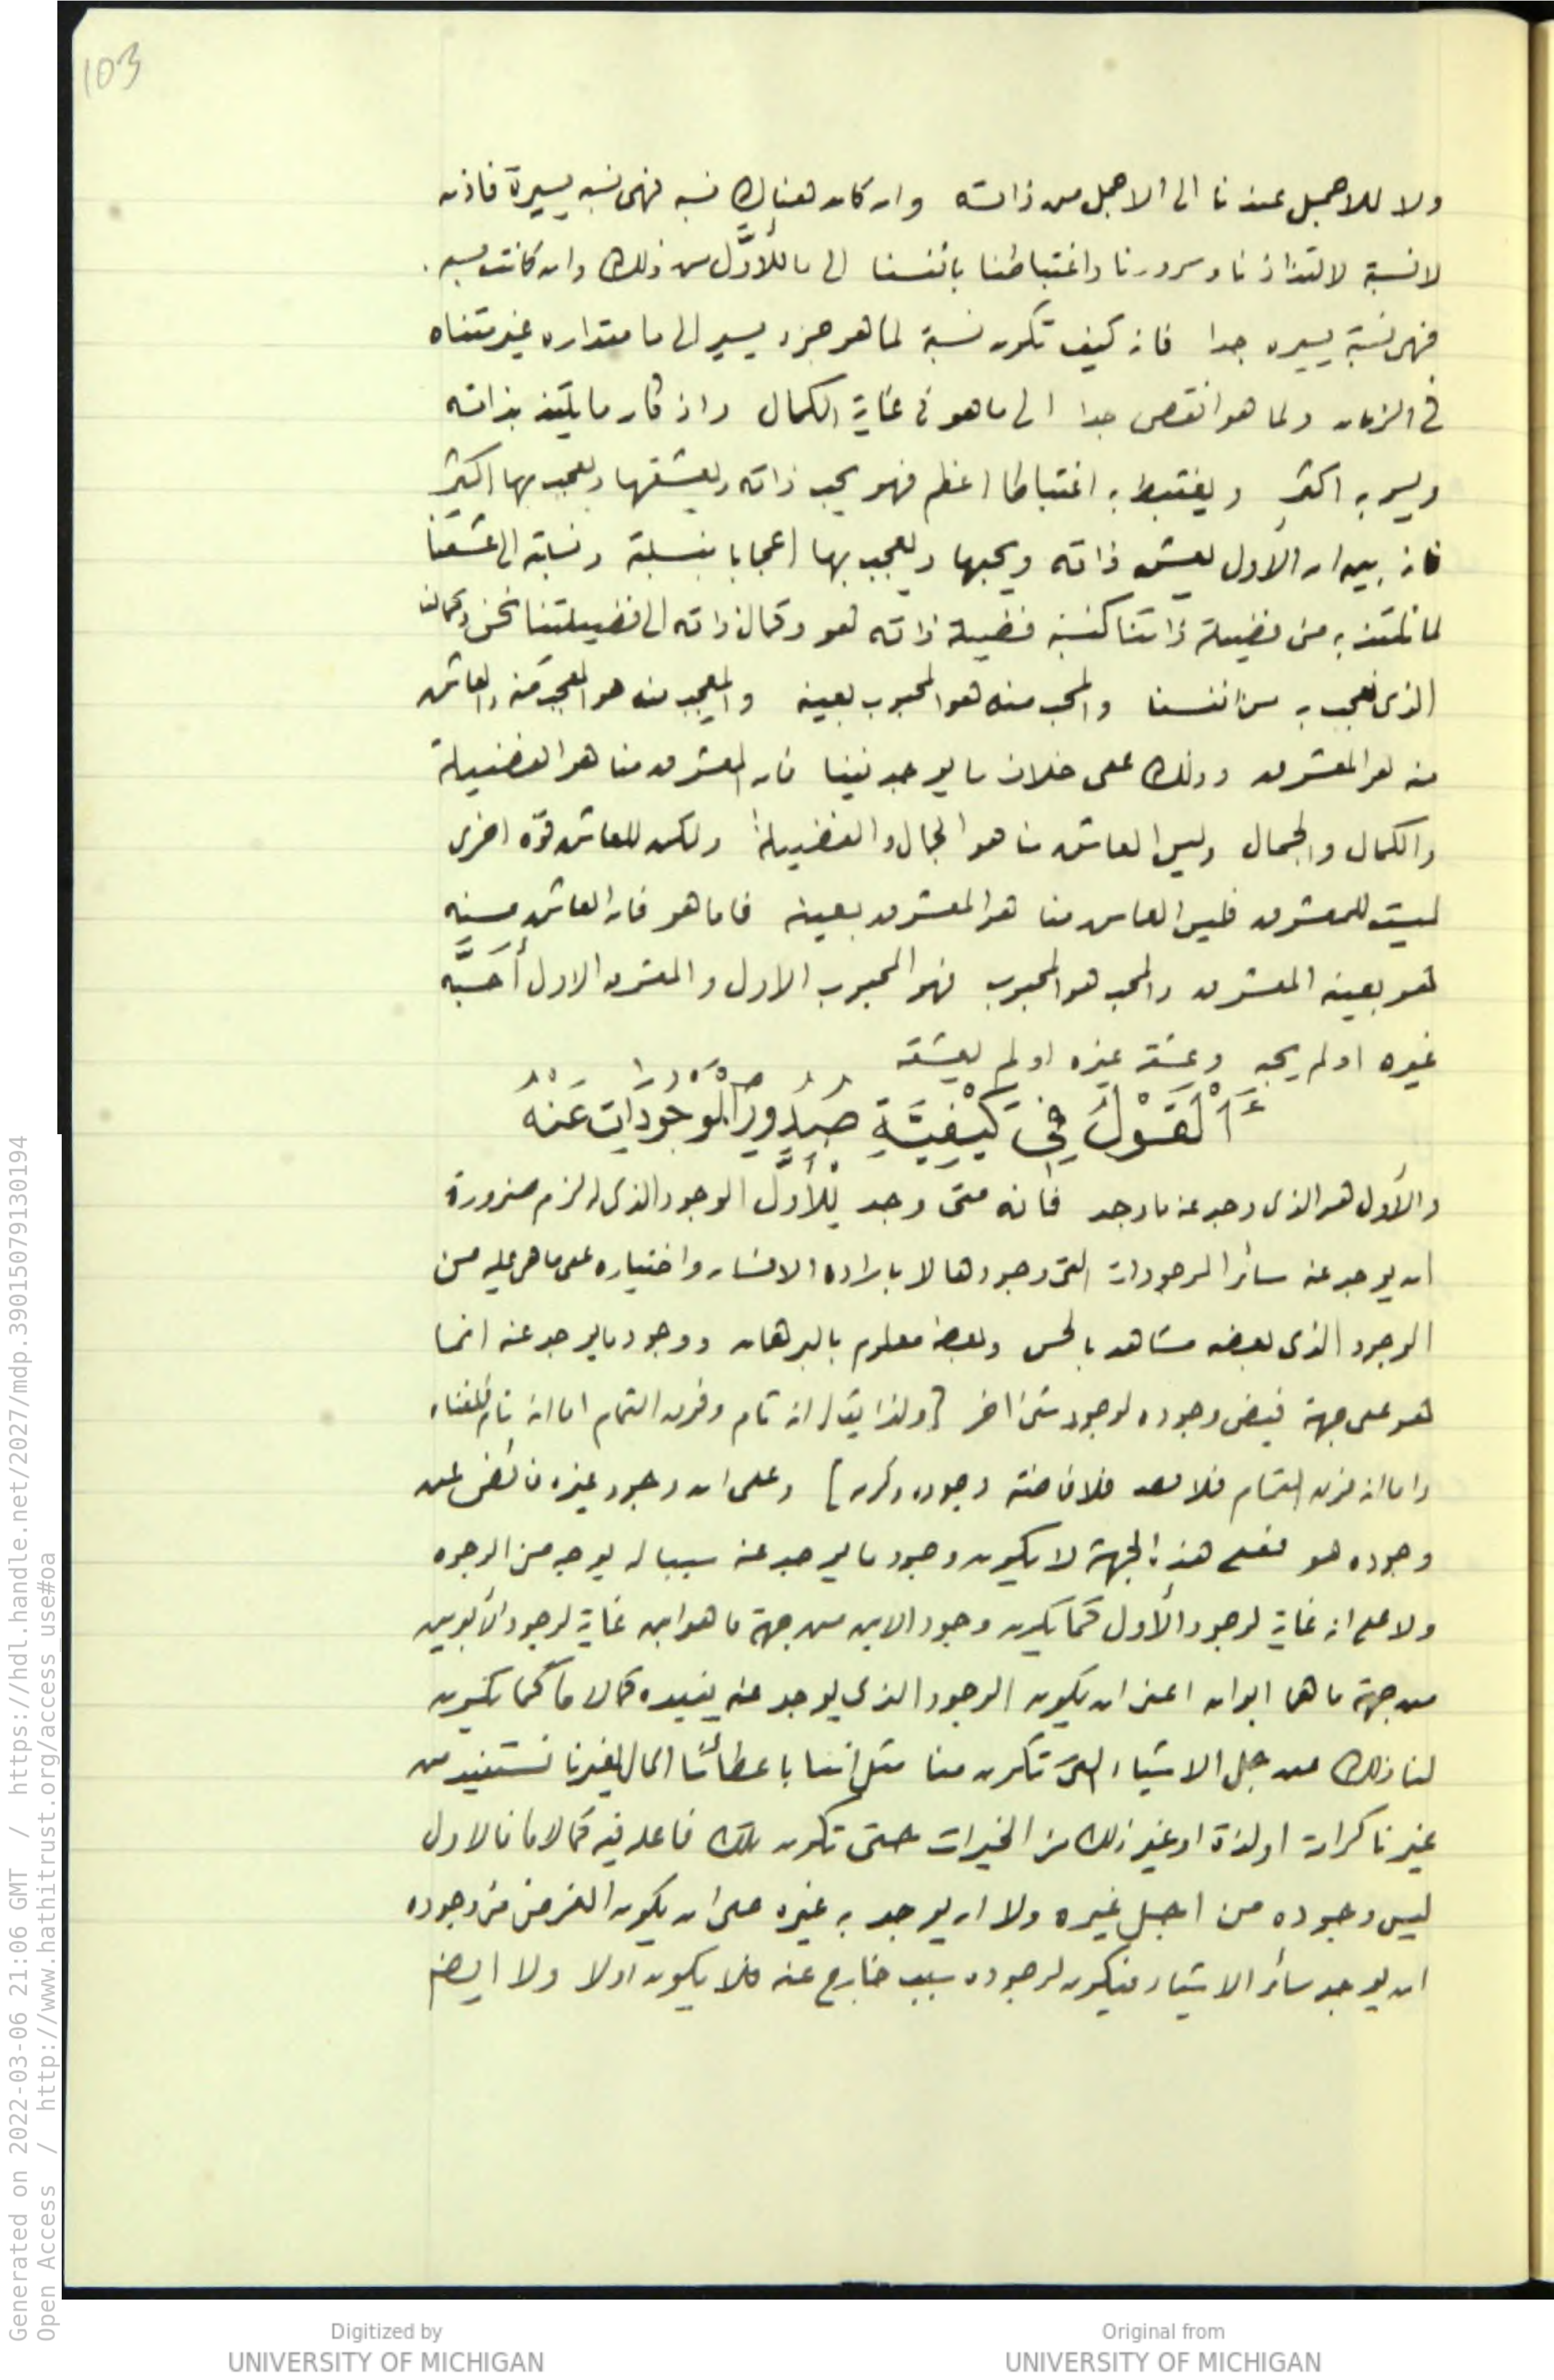 103
ولا للاجمل عندنا الى الاجمل من ذاته وان كان هناك نسبة فهى نسبه يسيرة فاذن
لا نسبة لالتذاذنا وسرورنا واغتباطنا بانفسنا الى ما للأوَّل من ذلك وان كانت نسبه
فهى نسبة يسيره جدا فانه كيف تكون نسبة لما هو جزء يسير الى ما مقداره غير متناه
فى الزمان ولما هو انقص جدا الى ما هو فى غاية الكمال واذ كان ما يلتذ بذاته
ويسر به اكثر ويغتبط به اغتباطا اعظم فهو يحب ذاته ويعشقها ويعجب بها اكثر
فانه بين ان الأول يعشق ذاته ويحبها ويعجب بها اعجابا بنسبة ونسبته الى عشقنا
لما نلتذ به من فضيلة ذاتنا كنسبة فضيلة ذاته هو وكمال ذاته الى فضيلتنا نحن وكمالنا
الذى نعجب به من انفسنا والمحب منه هو المحبوب بعينه والمعجب منه هو المعجب منه والعاشق
منه هو المعشوق وذلك على خلاف ما يوجد فينا فان المعشوق منا هو الفضيلة
والكمال والجمال وليس العاشق منا هو الجمال والفضيلة ولكن للعاشق قوّه اخرى
ليست للمعشوق فليس العاشق منا هو المعشوق بعينه فاما هو فان العاشق منه
هو بعينه المعشوق والمحب هو المحبوب فهو المحبوب الاول والمعشوق الاول أَحَبَّه
غيره او لم يحبه وعشقه غيره او لم يعشقه
اَلْقَوْلُ فِي كَيْفِيَّةِ صُدُورِ الْمَوْجُودَاتِ عَنْهُ
والأول هو الذى وجد عنه ما وجد فانه متى وجد لِلأوَّل الوجود الذى له لزم ضرورة
ان يوجد عنه سائر الموجودات التى وجودها لا بارادة الانسان واختياره على ما هى عليه من
الوجود الذى بعضه مشاهد بالحس وبعضه معلوم بالبرهان ووجود ما يوجد عنه انما
هو على جهة فيض وجوده لوجود شئ اخر [ولذا يقال انه تام وفوق التمام اما انه تام فلغناه
واما انه فوق التمام فلا فلافاضته وجوده وكرمه] وعلى ان وجود غيره فائض عن
وجوده هو فعلى هذه الجهة لا يكون وجود ما يوجد عنه سببا له بوجه من الوجوه
ولا على انه غاية لوجود الأول كما يكون وجود الابن من جهة ما هو ابن غاية لوجود الأبوين
من جهة ما هما ابوان اعنى ان يكون الوجود الذى يوجد عنه يفيده كمالا ما كما يكون
لنا ذلك من جل الاشياء التى تكون منا مثل اننا باعطائنا المال لغيرنا نستفيد من
غيرنا كرامة او لذة او غير ذلك من الخيرات حتى تكون تلك فاعله فيه كمالا ما فالاول
ليس وجوده من اجل غيره ولا ان يوجد به غيره حتى ان يكون الغرض من وجوده
ان يوجد سائر الاشياء فيكون لوجوده سبب خارج عنه فلا يكون اولا ولا ايضا
Generated on 2022-03-06 21:06 GMT / https://hdl.handle.net/2027/mdp.39015079130194
Open Access / http://www.hathitrust.org/access_use#oa
Digitized by
UNIVERSITY OF MICHIGAN
Original from
UNIVERSITY OF MICHIGAN